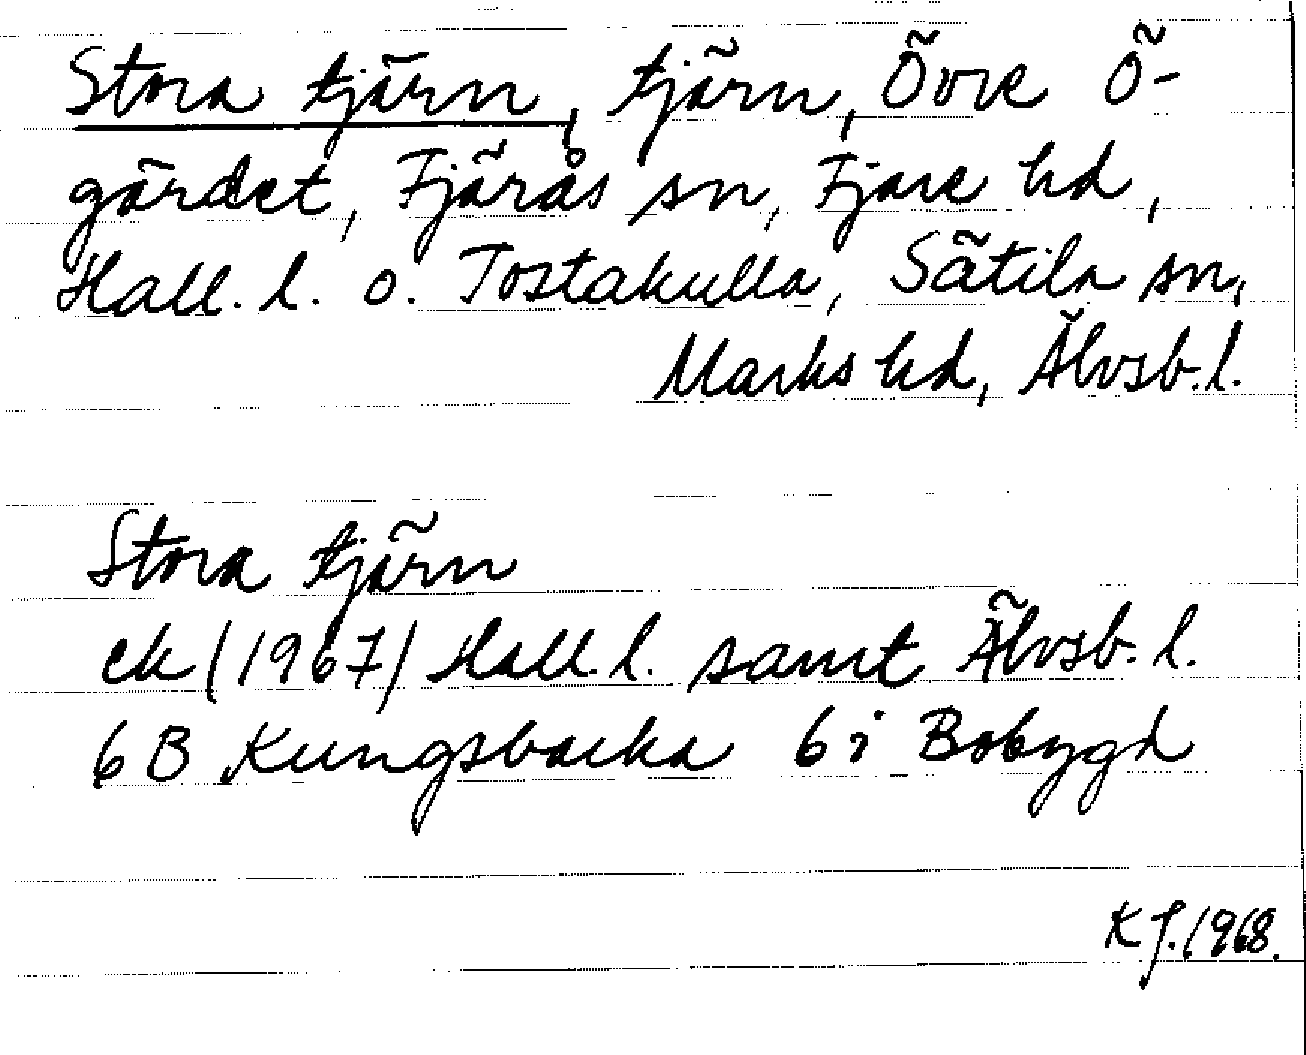 Stora tjärn, tjärn, Övre Ö-
gärdet, Fjärås sn, Fjäre hd,
Hall. l. o. Tostakulla, Sätila sn,
Marks hd, Älvsb. l.
Stora tjärn
ek (1967) Hall. l. samt Älvsb. l.
6 B Kungsbacka 6 i Bobygd
K J. 1968.